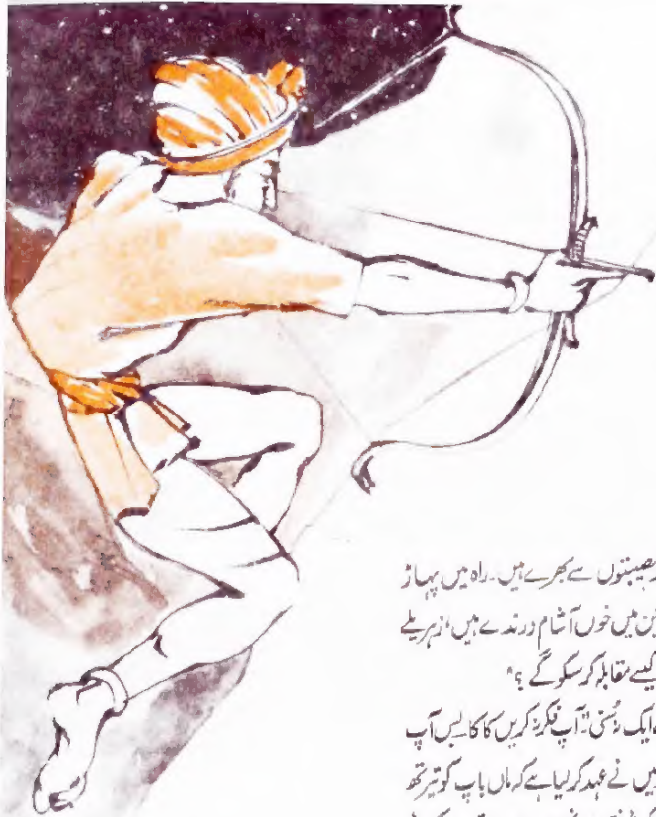 مصیبتوں سے بھرے ہیں۔ راہ میں پہاڑ
جن میں خوں آشام درندے ہیں، زہریلے
کیسے مقابلہ کر سکو گے؟"
ایک نہ سُنی "آپ فکر نہ کریں کاکا بس آپ
میں نے عہد کر لیا ہے کہ ماں باپ کو تیرتھ